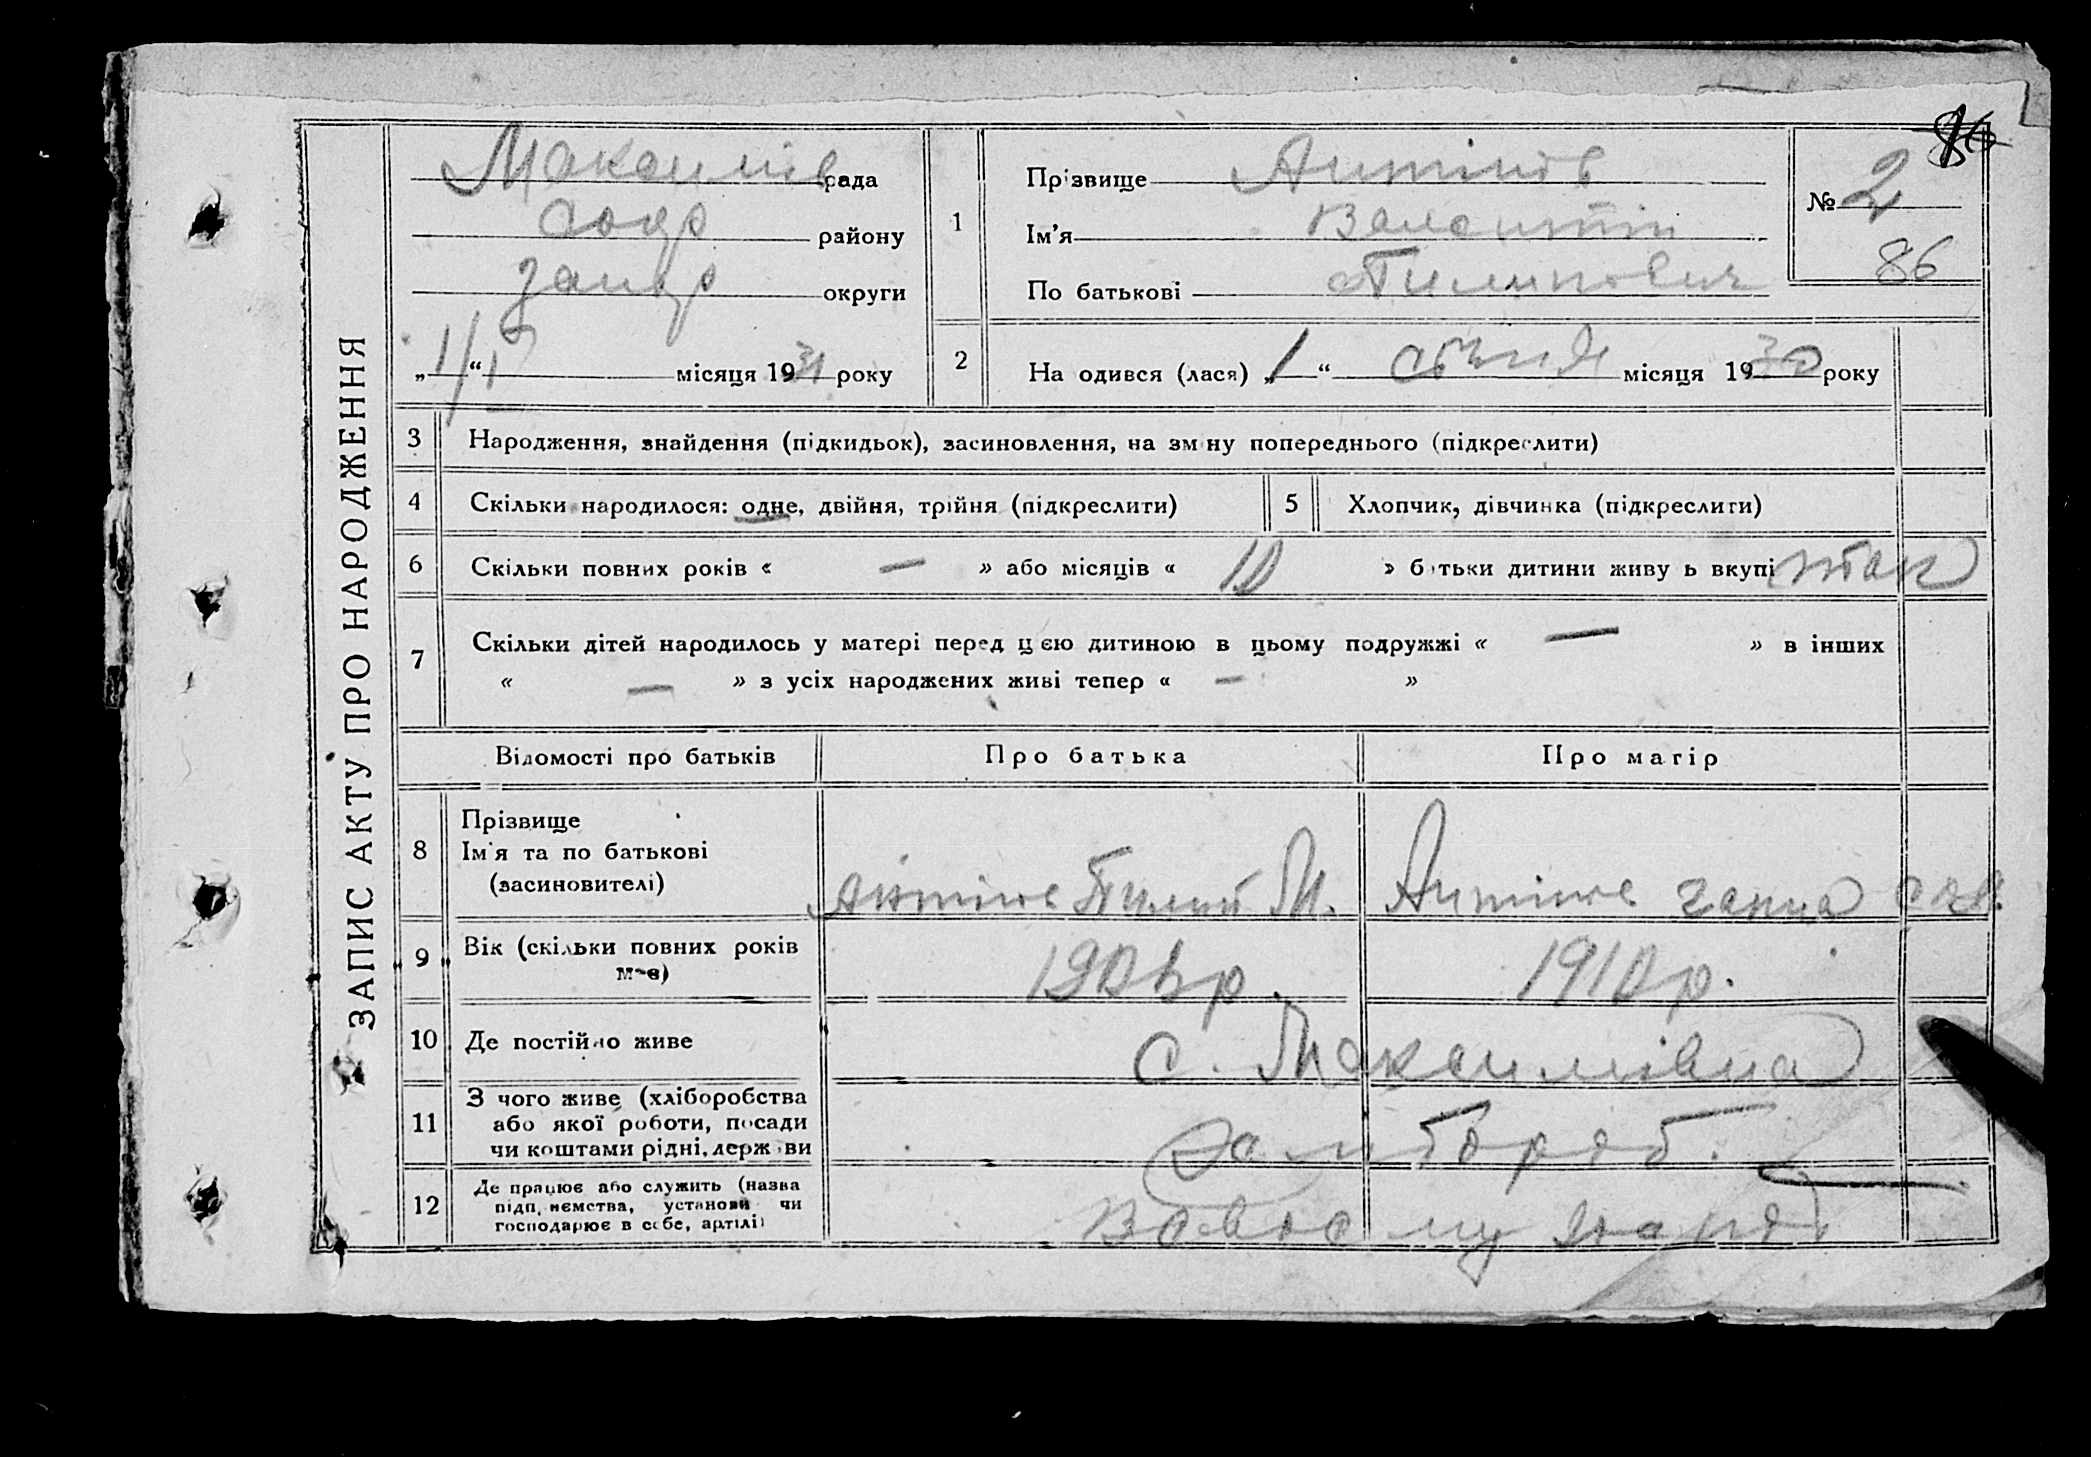 ЗАПИС АКТУ ПРО НАРОДЖЕННЯ
86
Максимів рада
району
Запор округи
„1/I“ місяця 1931 року
1
Прізвище Антіпов
Ім'я Валентін
По батькові Пилипович
№ 2
86
2
На одився (лася) „1“ січня місяця 1930 року
3 Народження, знайдення (підкидьок), засиновлення, на зм ну попереднього (підкреслити)
4 Скільки народилося: одне, двійня, трійня (підкреслити)
5 Хлопчик, дівчинка (підкреслити)
6 Скільки повних років « — » або місяців « 10 » б тьки дитини живу ь вкупі так
7 Скільки дітей народилось у матері перед цією дитиною в цьому подружжі « — » в інших
« — » з усіх народжених живі тепер « — »
Відомості про батьків
Про батька
Про матір
8 Прізвище
Ім'я та по батькові
(засиновителі)
Антіпов Пилип М.
Антіпова Ганна
9 Вік (скільки повних років
м-в)
190 р.
1910 р.
10 Де постійно живе
с. Максимівна
11 З чого живе (хліборобства
або якої роботи, посади
чи коштами рідні, держ ви
12 Де працює або служить (назва
підп, иємства, установи чи
господарює в себе, артілі)